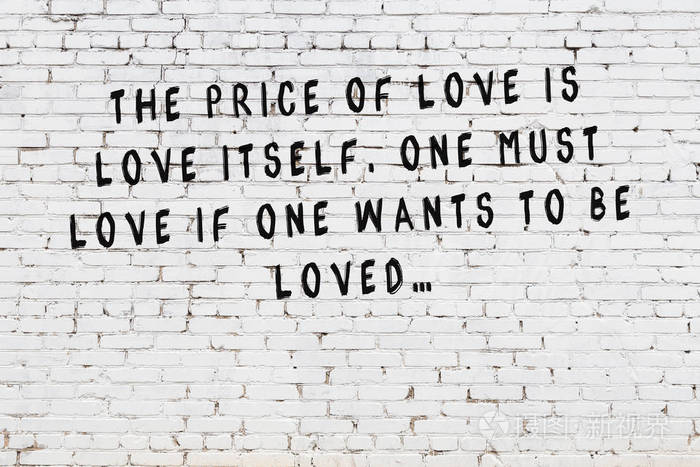 THE PRICE OF LOVE IS
LOVE ITSELF. ONE MUST
LOVE IF ONE WANTS TO BE
LOVED...
摄图·新视界